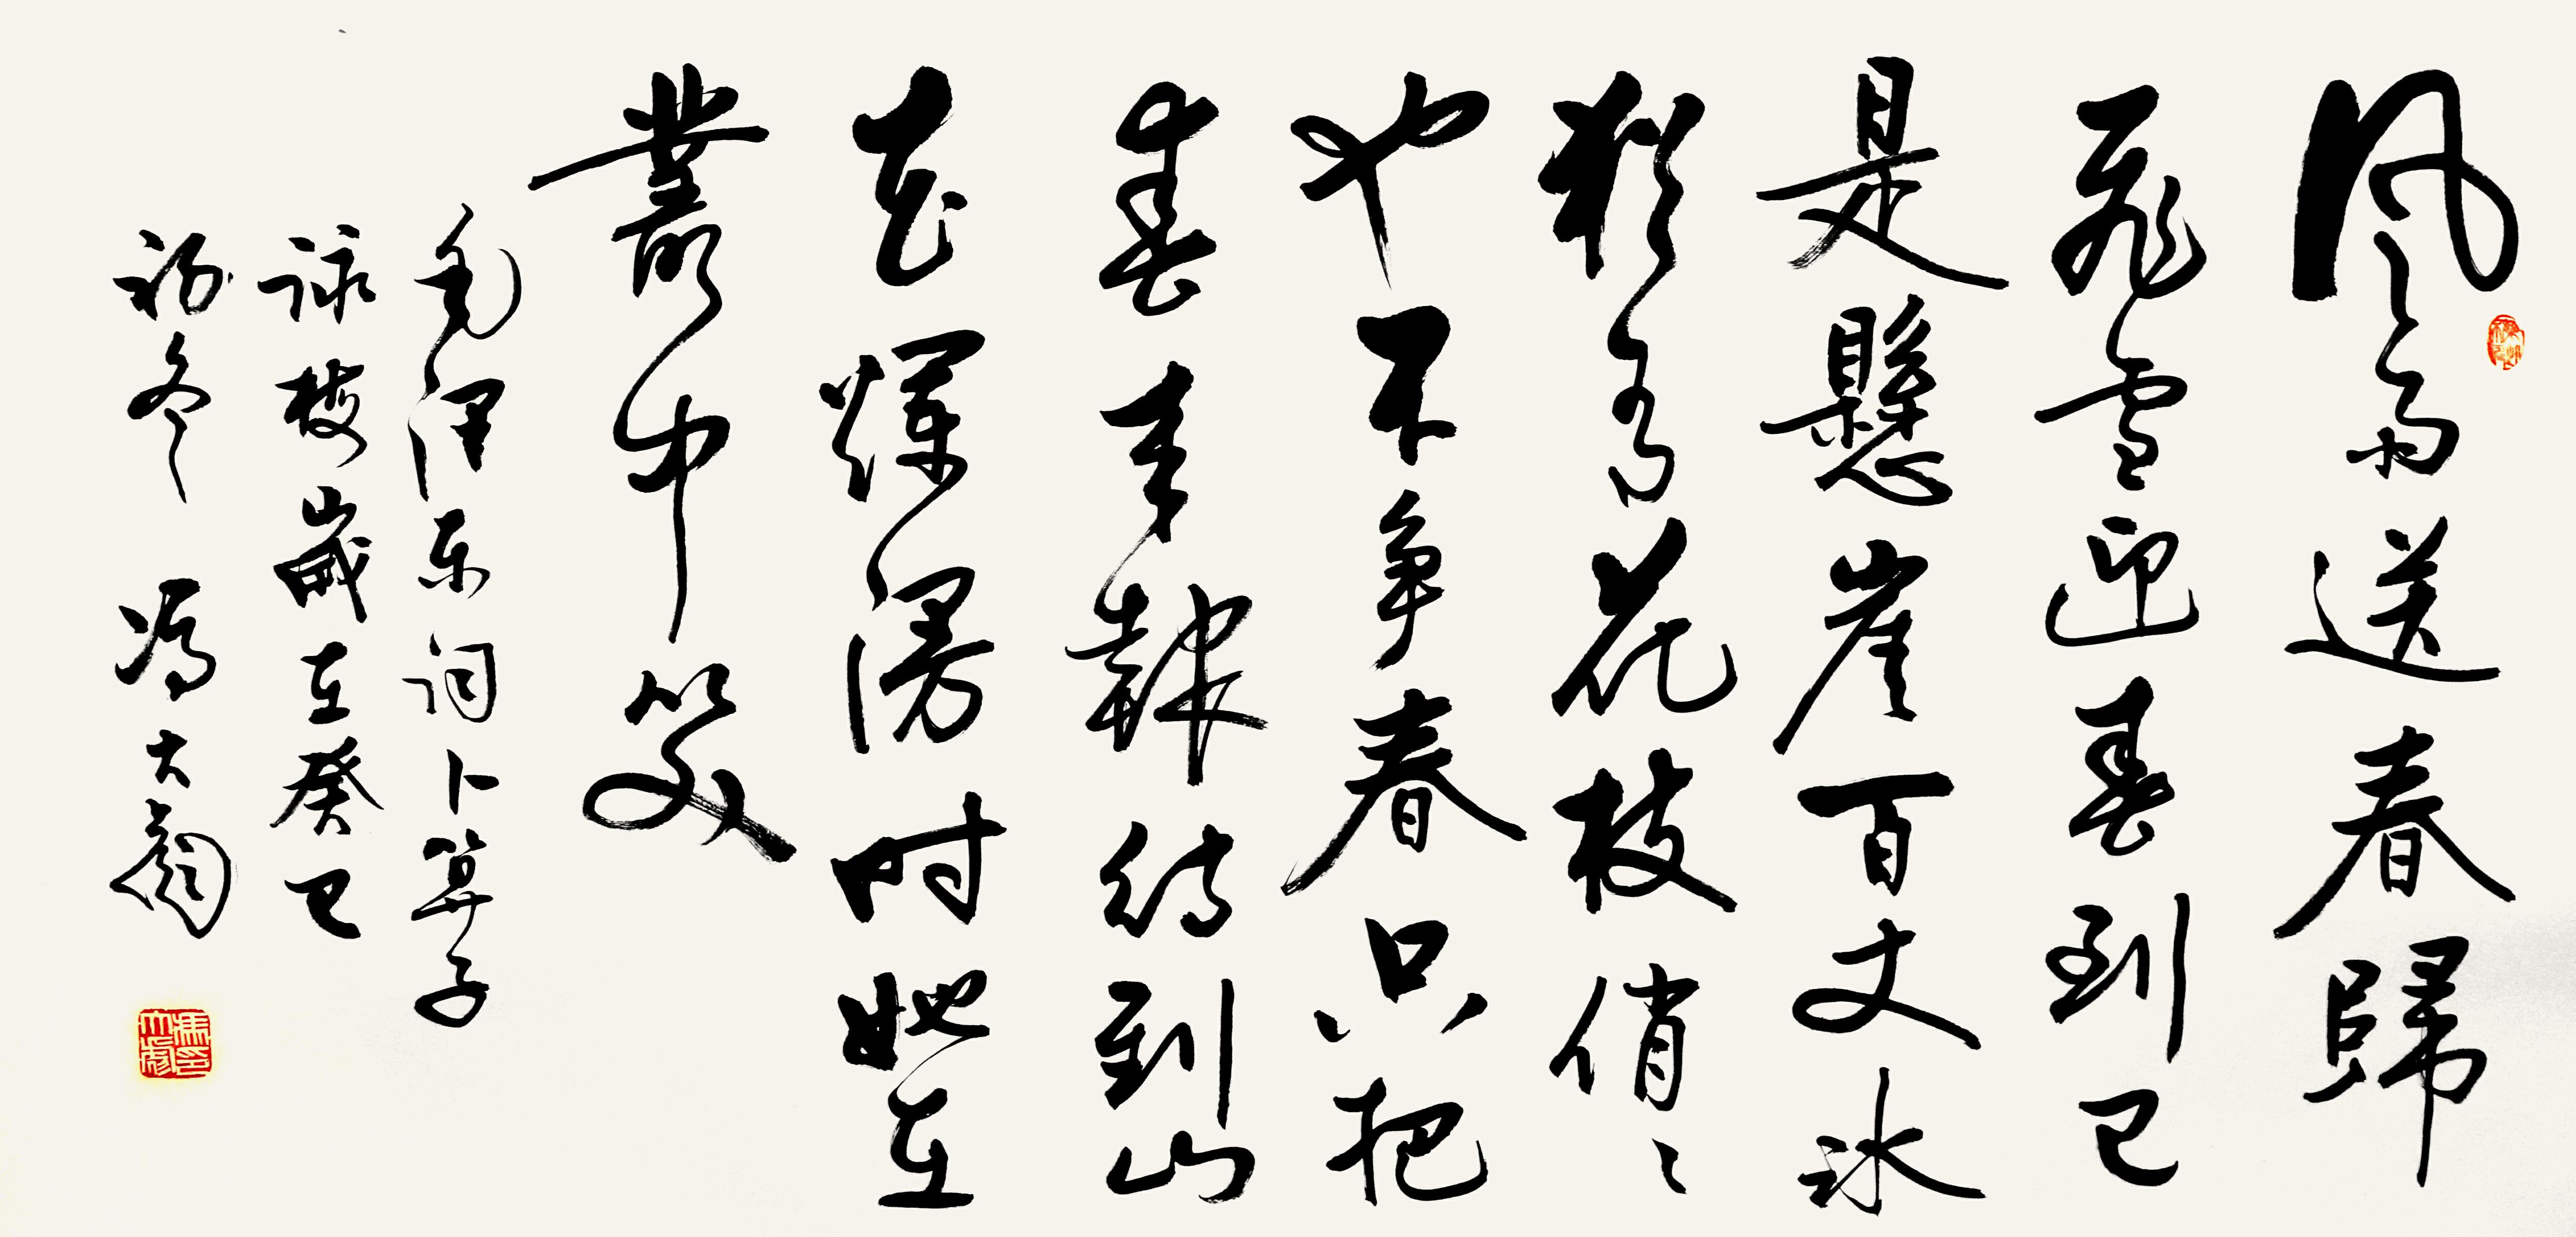 风雨送春歸
飛雪迎春到已
是懸崖百丈冰
猶有花枝俏〻
也不争春只把
春来報待到山
花爛漫时她在
叢中笑
毛泽东词卜算子
咏梅歲在癸巳
初冬 冯大彪